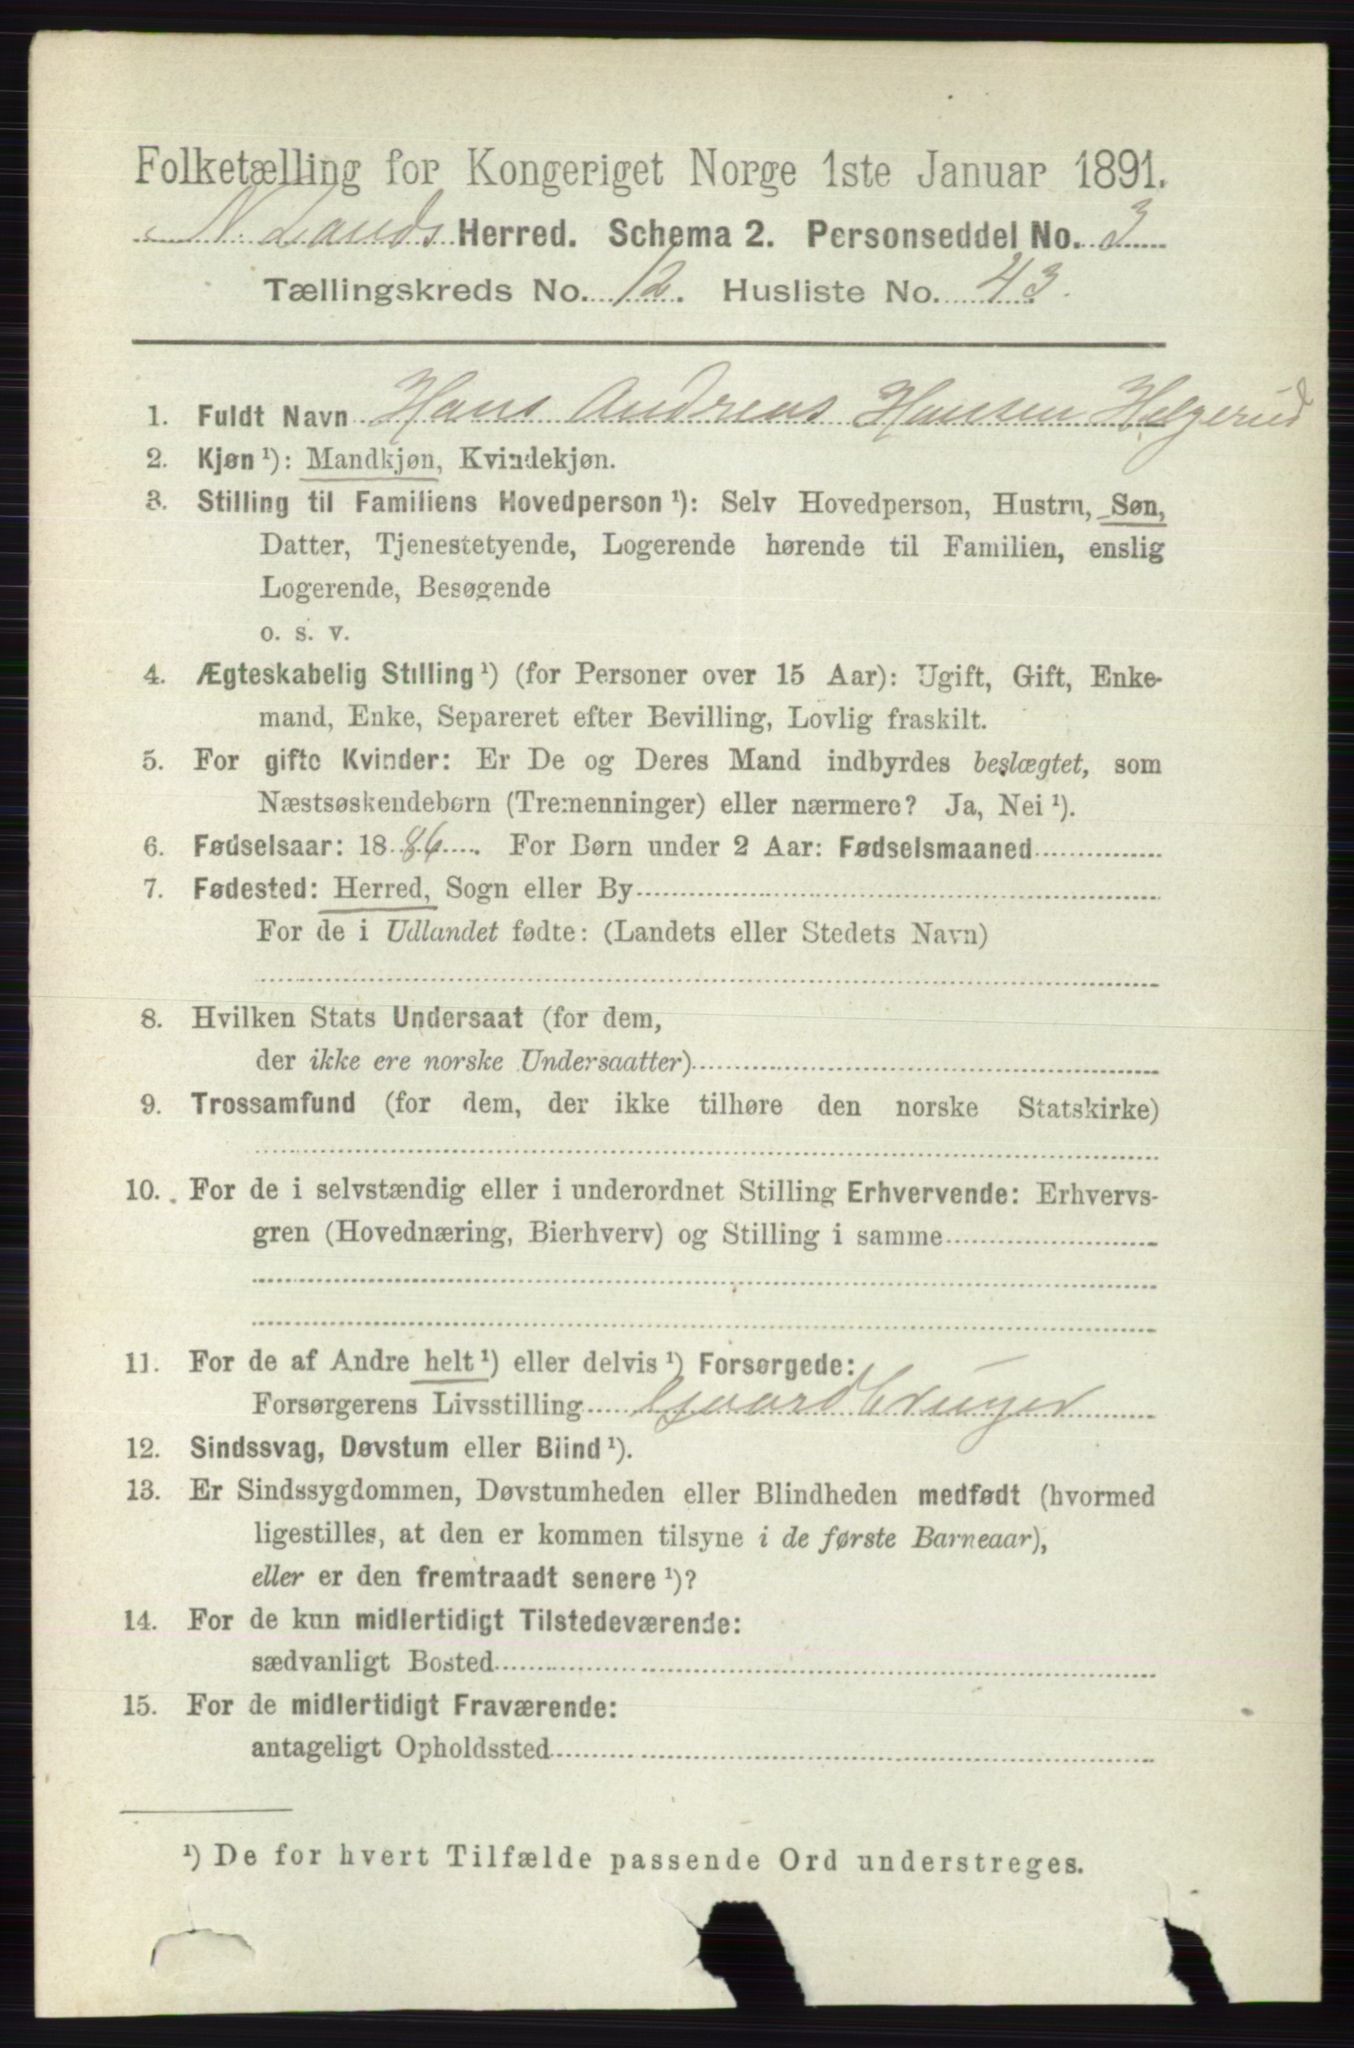 Folketælling for Kongeriget Norge 1ste Januar 1891.
N. Lands Herred. Schema 2. Personseddel No. 3
Tællingskreds No. 12. Husliste No. 43.
1. Fuldt Navn Hans Andreas Hansen Helgerud
2. Kjøn ¹): Mandkjøn, Kvindekjøn.
3. Stilling til Familiens Hovedperson ¹): Selv Hovedperson, Hustru, Søn,
Datter, Tjenestetyende, Logerende hørende til Familien, enslig
Logerende, Besøgende
o. s. v.
4. Ægteskabelig Stilling ¹) (for Personer over 15 Aar): Ugift, Gift, Enke-
mand, Enke, Separeret efter Bevilling, Lovlig fraskilt.
5. For gifte Kvinder: Er De og Deres Mand indbyrdes beslægtet, som
Næstsøskendebørn (Tremenninger) eller nærmere? Ja, Nei ¹).
6. Fødselsaar: 1886. For Børn under 2 Aar: Fødselsmaaned
7. Fødested: Herred, Sogn eller By
For de i Udlandet fødte: (Landets eller Stedets Navn)
8. Hvilken Stats Undersaat (for dem,
der ikke ere norske Undersaatter)
9. Trossamfund (for dem, der ikke tilhøre den norske Statskirke)
10. For de i selvstændig eller i underordnet Stilling Erhvervende: Erhvervs-
gren (Hovednæring, Bierhverv) og Stilling i samme
11. For de af Andre helt ¹) eller delvis ¹) Forsørgede:
Forsørgerens Livsstilling Gaardbruger
12. Sindssvag, Døvstum eller Blind ¹).
13. Er Sindssygdommen, Døvstumheden eller Blindheden medfødt (hvormed
ligestilles, at den er kommen tilsyne i de første Barneaar),
eller er den fremtraadt senere ¹)?
14. For de kun midlertidigt Tilstedeværende:
sædvanligt Bosted
15. For de midlertidigt Fraværende:
antageligt Opholdssted
¹) De for hvert Tilfælde passende Ord understreges.